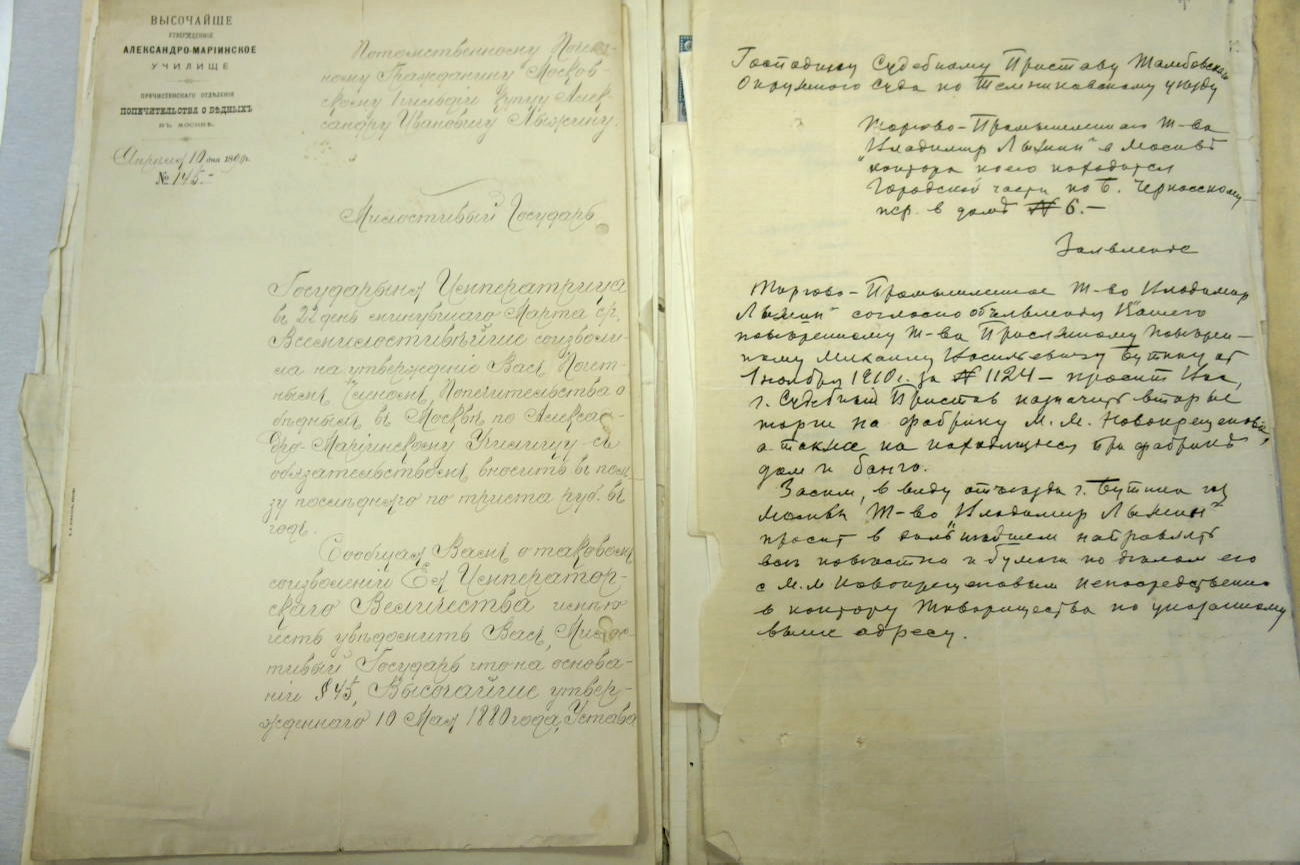 ВЫСОЧАЙШЕ
УТВЕРЖДЕННОЕ
АЛЕКСАНДРО-МАРІИНСКОЕ
УЧИЛИЩЕ
ПРЕЧИСТЕНСКАГО ОТДѢЛЕНІЯ
ПОПЕЧИТЕЛЬСТВА О БѢДНЫХЪ
ВЪ МОСКВѢ.
Апрѣля 10 дня 189
№ 145.
Потомственному Почет-
ному Гражданину Москов-
скому Гильдіи Купцу Алек
сандру Ивановичу Лыжину.
Милостивый Государь
Государыня Императрица
въ 22 день минувшаго Марта
Всемилостивѣйше соизволи-
ла на утвержденіе Васъ Почет-
нымъ Членомъ Попечительства о
бѣдныхъ въ Москвѣ по Алексан-
дро-Маріинскому Училищу съ
обязательствомъ вносить въ поль
зу послѣдняго по триста руб. въ
годъ.
Сообщая Вамъ о таковомъ
соизволеніи Ея Император-
скаго Величества имѣю
честь увѣдомить Васъ, Милос-
тивый Государь что на основа-
ніи §45, Высочайше утвер-
жденнаго 10 Мая 1880 года, Устава
Господину Судебному Приставу Тамбовскаго
Окружного Суда по Темниковскому уѣзду
Торгово-Промышленнаго Т-ва
"Владимир Лыжин" в Москвѣ
контора коего находится
Городской части по Б. Черкасскому
пер. в домѣ № 6.-
Заявленіе
Торгово-Промышленное Т-во Владимир
Лыжин" согласно объявленію Вашего
повѣренному Т-ва Присяжному Повѣрен-
ному Михаилу Васильевичу Бутину от
1 ноября 1910 г. за № 1124 - просит Вас,
г. Судебный Пристав назначить вторые
торги на фабрику М. М. Новокрещенова,
а также на находящіеся при фабрикѣ
дом и баню.
Засим, в виду отъѣзда г. Бутина из
Москвы Т-во "Владимир Лыжин"
просит в дальнѣйшем направлять
всѣ повѣстки и бумаги по дѣлам его
с М. М Новокрещеновым непосредственно
в контору Товарищества по указанному
выше адресу.